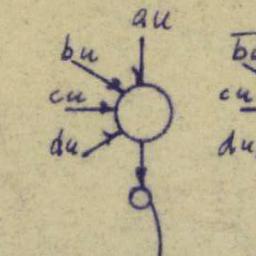 au
bu
cu
du
cu
du